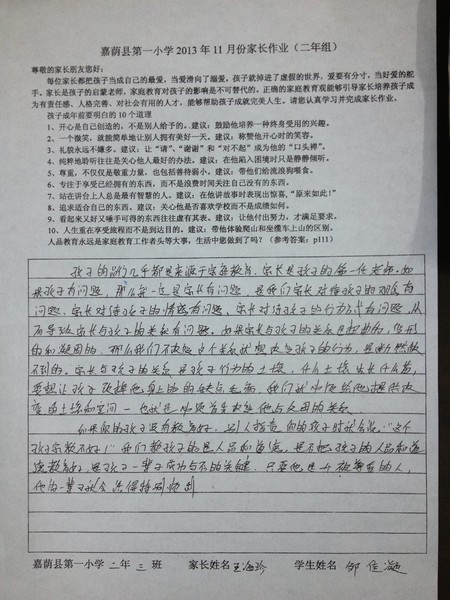 嘉荫县第一小学 2013 年 11 月份家长作业（二年组）
尊敬的家长朋友您好：
每位家长都把孩子当成自己的最爱，当爱滑向了溺爱，孩子就掉进了虚假的世界，爱要有分寸，当好爱的舵
手。家长是孩子的启蒙老师，家庭教育对孩子的影响是不可替代的。正确的家庭教育观能够引导家长培养孩子成
为有责任感、人格完善、对社会有用的人才，能够帮助孩子成就完美人生。请您认真学习并完成家长作业。
孩子成年前要明白的 10 个道理
1、开心是自己创造的，不是别人给予的。建议：鼓励他培养一种终身受用的兴趣。
2、一个微笑，就能简单地让别人拥有美好一天。建议：称赞他开心时的笑容。
3、礼貌永远不嫌多。建议：让“请”、“谢谢”和“对不起”成为他的“口头禅”。
4、纯粹地聆听往往是关心他人最好的办法。建议：在他陷入困境时只是静静倾听。
5、尊重，不仅仅是敬重力量，也包括善待弱小。建议：带他们给流浪狗喂食。
6、专注于享受已经拥有的东西，而不是浪费时间关注自己没有的东西。
7、站在讲台上人总是最有智慧的人。建议：在他讲故事时表现出惊喜，“原来如此！”
8、追求适合自己的东西。建议：关心他是否喜欢学校而不是成绩如何。
9、看起来又好又唾手可得的东西往往虚有其表。建议：让他付出努力，才满足要求。
10、人生重在享受旅程而不是到达目的。建议：带他体验爬山和坐缆车上山的区别。
人品教育永远是家庭教育工作者头等大事，生活中您做到了吗？（参考答案：p111）
孩子的 几乎都是来源于家庭教育，家长是孩子的第一任老师。如
果孩子有问题，那么一定是家长有问题，是我们家长对待孩子的观念有
问题，家长对待孩子的情绪有问题，家长对待孩子的行为方式有问题，从
而导致家长与孩子的关系有问题。如果家长与孩子的关系是扭曲的，变形
的和凝固的，那么我们不改变这个关系就想改变孩子的行为，是断然做
不到的。家长与孩子的关系是孩子行为的土壤，什么土壤生长什么苗，
要想让孩子改掉他身上的缺点毛病，我们就必须给他提供改
变的土壤和空间－也就是必须首先改变他与父母的关系
如果你的孩子没有教育好，别人指责你的孩子时就会说：“这个
孩子家教不好！”我们教孩子的是人品和道德，是不把孩子的人品和道
德教育好，是孩子一辈子成功与否的关键。只要他是个被尊重的人，
他的一辈子就会活得特别顺利
嘉荫县第一小学 二 年 三 班 家长姓名 王海珍 学生姓名 邹佳凝